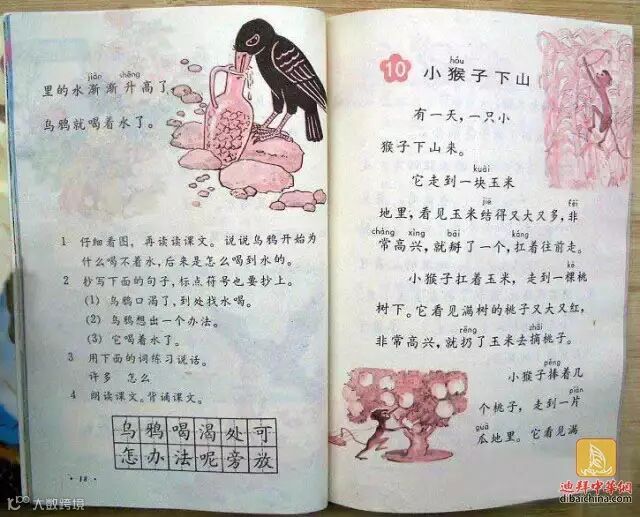 jiàn shēng
里的水渐渐升高了
乌鸦就喝着水了。
1 仔细看图，再读读课文。说说乌鸦开始为
什么喝不着水，后来是怎么喝到水的。
2 抄写下面的句子，标点符号也要抄上。
(1) 乌鸦口渴了，到处找水喝。
(2) 乌鸦想出一个办法。
(3) 它喝着水了。
3 用下面的词练习说话。
许多 怎么
4 朗读课文。背诵课文。
乌鸦喝渴处可
怎办法呢旁放
·18·
hóu
10 小猴子下山
有一天，一只小
猴子下山来。
kuài
它走到一块玉米
jiē fēi
地里，看见玉米结得又大又多，非
cháng xìng bāi káng
常高兴，就掰了一个，扛着往前走。
kē
小猴子扛着玉米，走到一棵桃
树下。它看见满树的桃子又大又红，
rēng zhāi
非常高兴，就扔了玉米去摘桃子。
pěng
小猴子捧着几
piàn
个桃子，走到一片
guā
瓜地里。它看见满
大数跨境
迪拜中华网
dibaichina.com